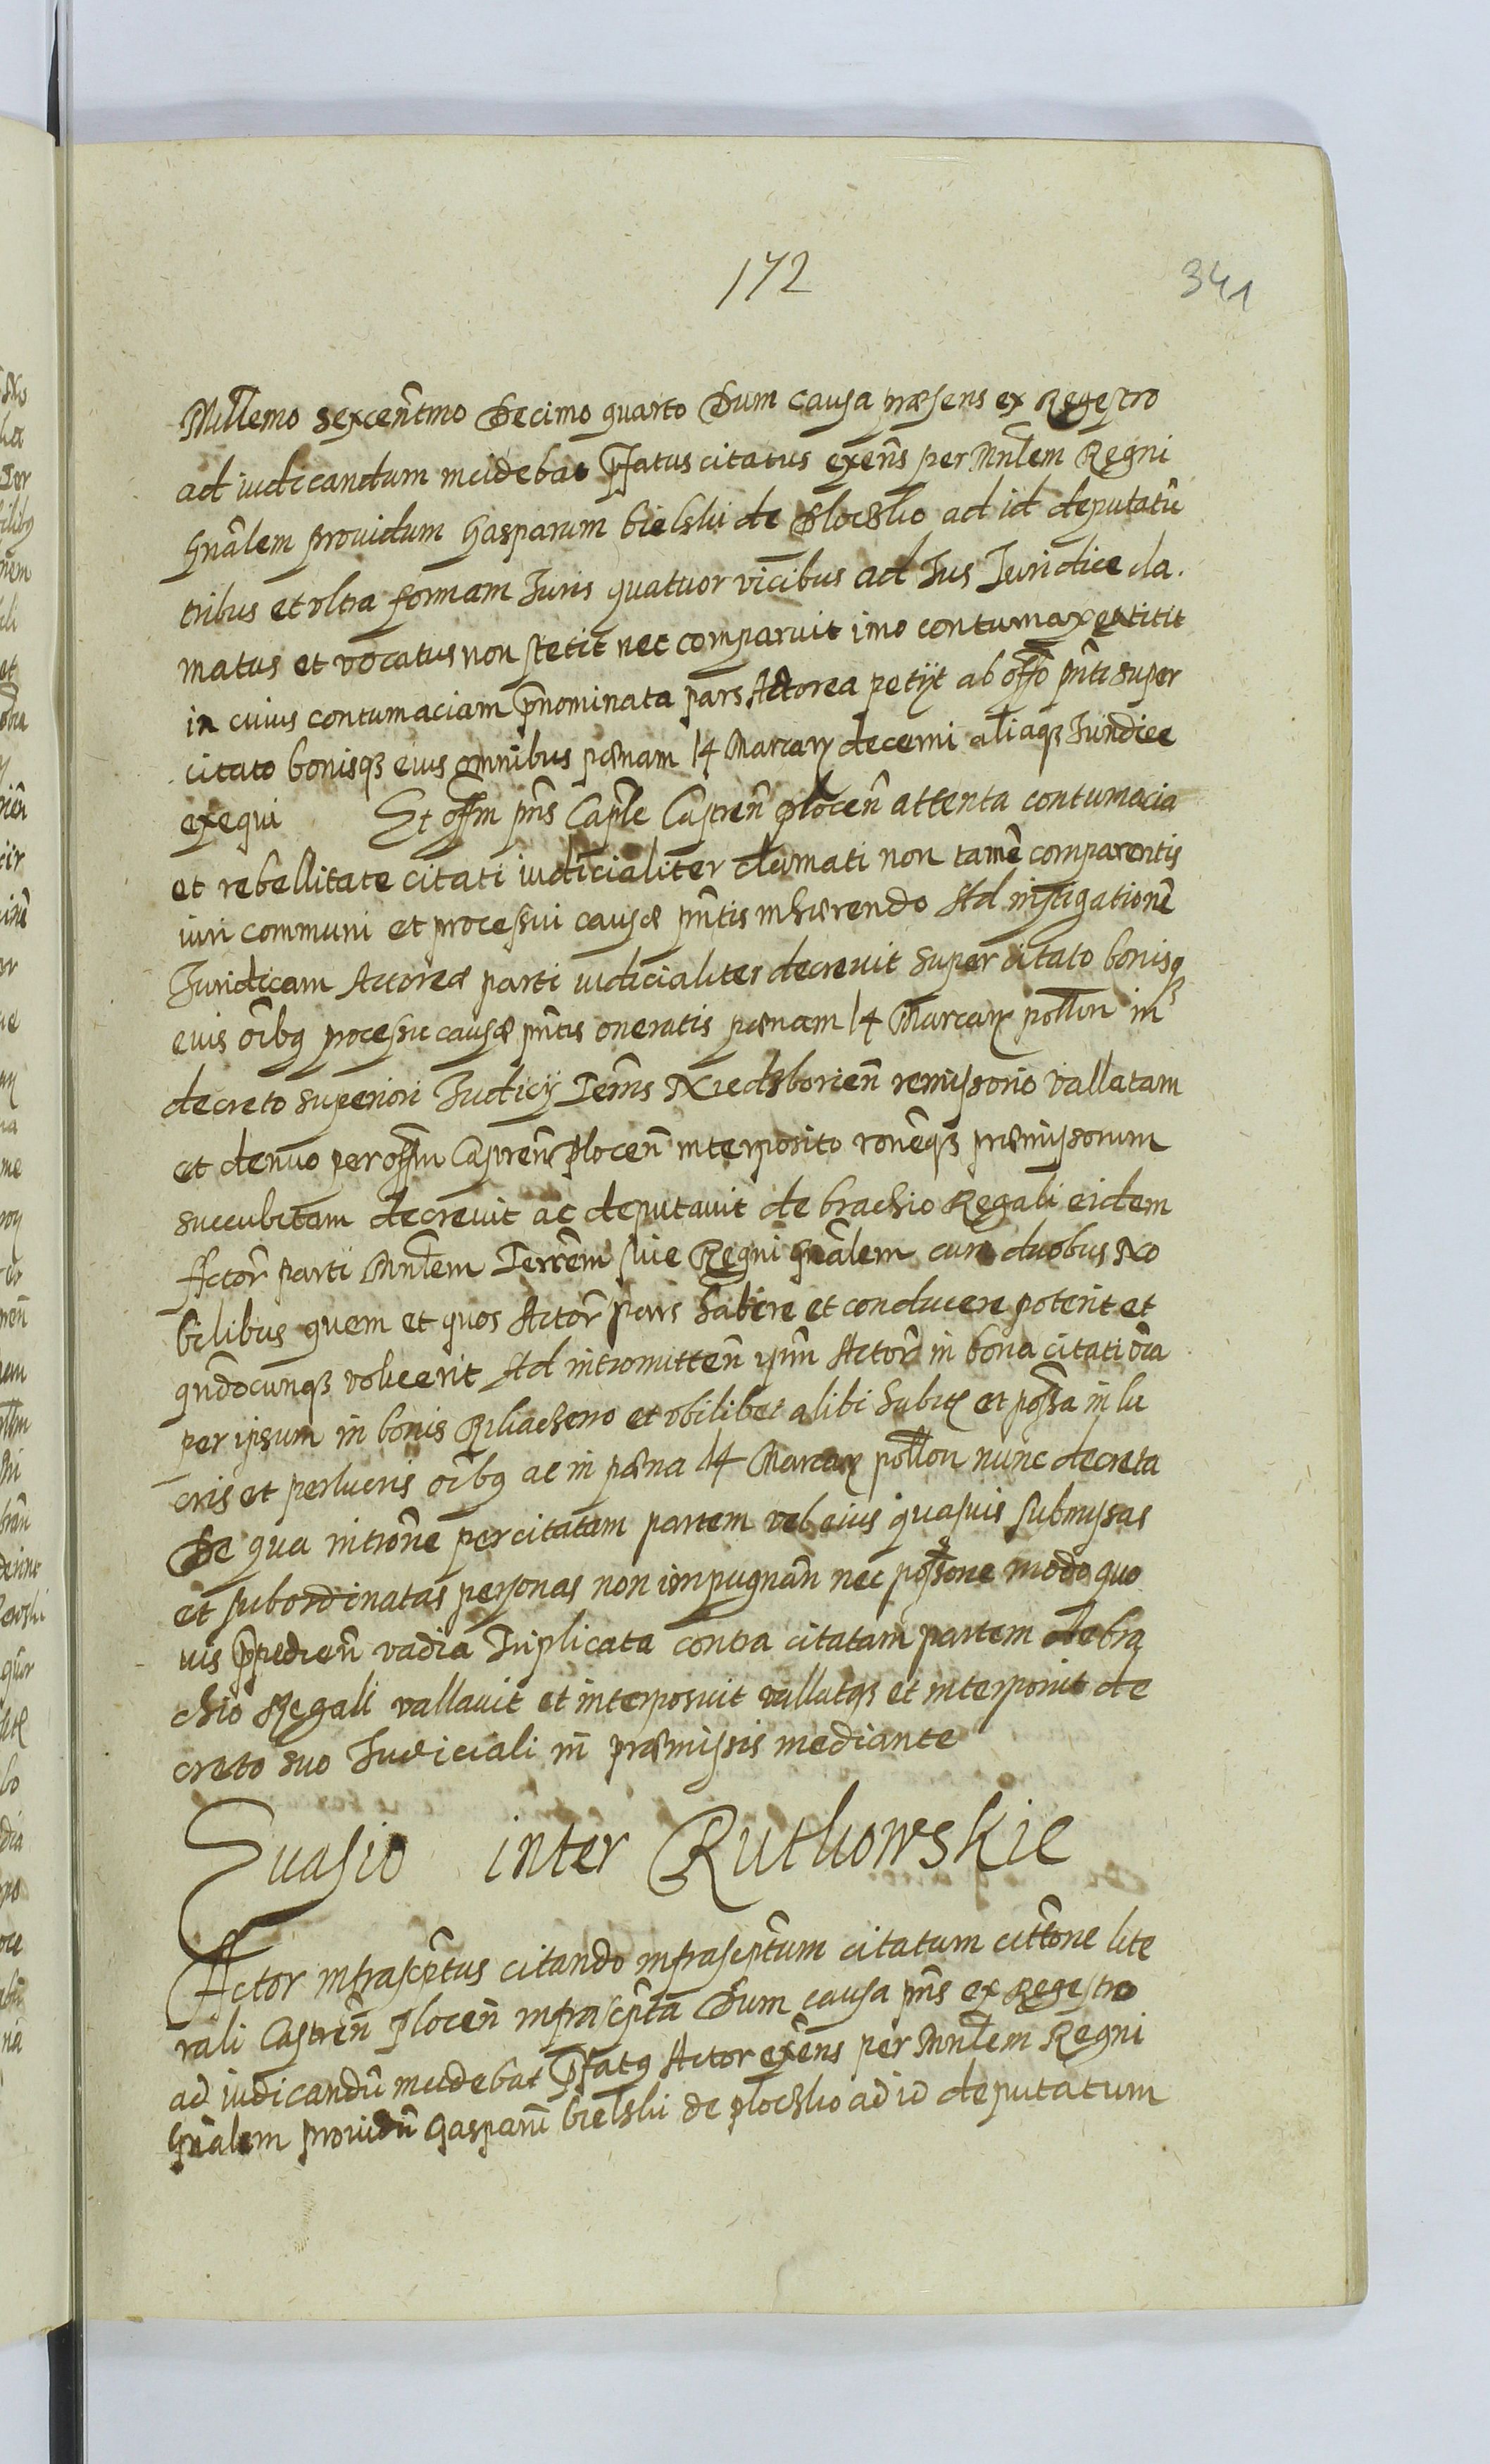 172
341
Millemo sexcentmo Decimo quarto Dum causa præsens ex Regestro
ad iudicandum incidebat Pfatus citatus exens per Mnlem Regni
Gnalem prouidum Gasparum bielski de Plocsko ad id deputatu
tribus et vltra formam Juris quatuor vicibus ad Jus Juridice cla
matus et vocatus non stetit nec comparuit imo contumax extitit
in cuius contumaciam Pnominata pars Actorea petÿt ab offo pnti super
citato bonisqз eius omnibus pænam 14 Marcarum decerni aliaqз Juridice
exequi Et offm pns Caple Castren Plocen attenta contumacia
et rebellitate citati iudicialiter clamati non tame comparentis
iuri communi et processui causæ pntis inhærendo Ad instigatione
Juridicam Actoreæ parti iudicialiter decreuit super citato bonisqз
eius oibus processu causæ pntis oneratis pænam 14 Marcarum pollon in
decreto superiori Judicÿ Terris Niedzborien remissorio vallatam
et denuo per offm Castren Plocen interposito roneqз præmissorum
succubitam decreuit ac deputauit de brachio Regali eidem
Actor parti Mnlem Terrem siue Regni Gnalem cum duobus No
bilibus quem et quos Actor pars habere et conducere poterit et
qndocunqз voluerit Ad intromitten ipm Actor in bona citati oia
per ipsum in bonis et vbilibet alibi habita et possa in lu
cris et perlucris oibus ac in pæna 14 Marcarum pollon nunc decreta
De qua introne per citatam partem vel eius quasuis submissas
et subordinatas personas non impugnan nec possone modo quo
uis Ppedien vadia Triplicata contra citatam partem de bra
chio Regali vallauit et interposuit vallatqз et interponit de
creto suo Judiciali in præmissis mediante
Euasio inter Rutkowskie
Actor infrascptus citando infrascptum citatum cittone lite
rali Castren Plocen infrascpta Dum causa pns ex Regestro
ad iudicandu incidebat Pfatus Actor exens per Mnlem Regni
Gnalem prouidu Gasparu bielski de plocsko ad id deputatum